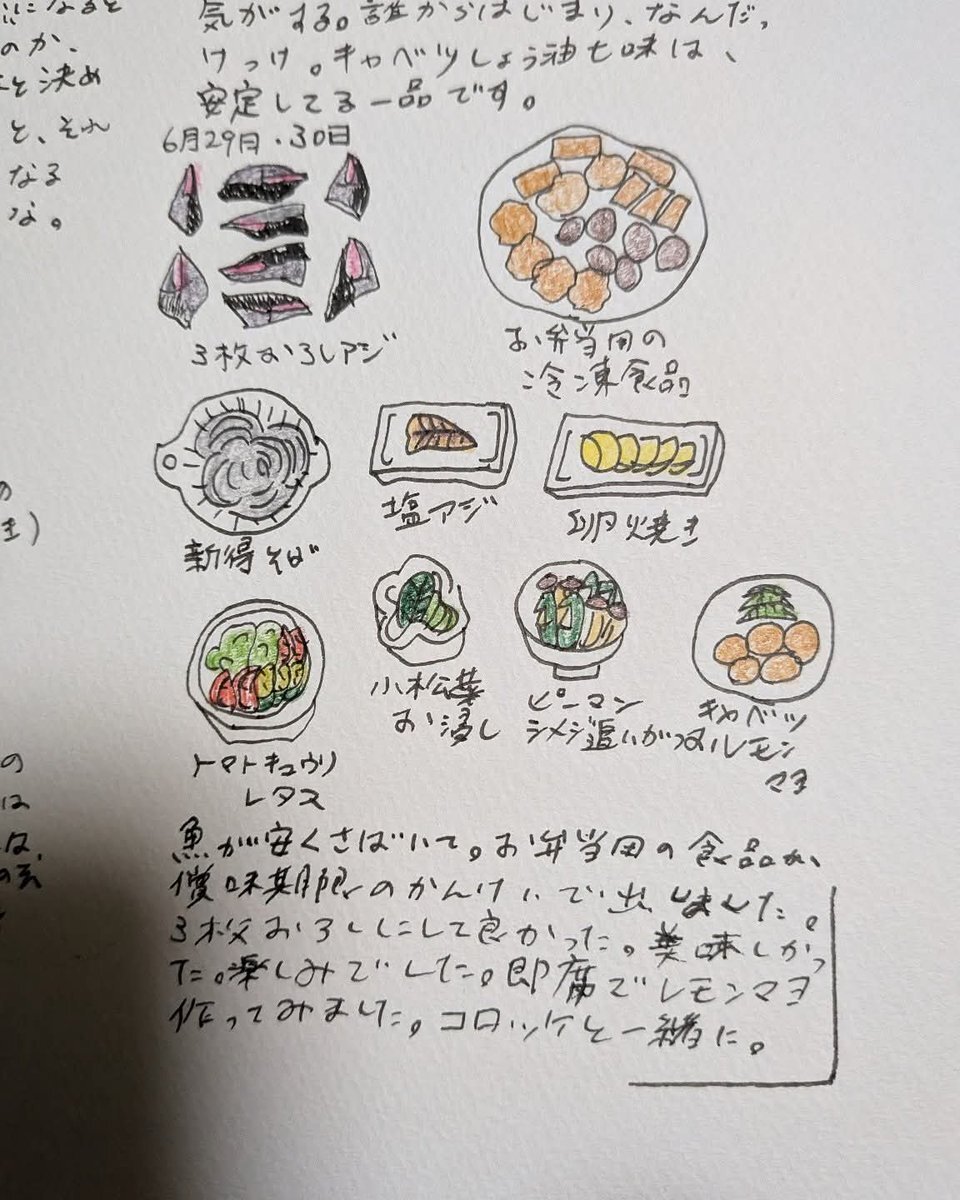 になると
のか、
と決め
と、それ
なる
な。
気がする。誰からはじまり、なんだっ
けっけ。キャベツしょう油七味は、
安定してる一品です。
6月29日・30日
3枚おろしアジ
お弁当用の
冷凍食品
新得そば
塩アジ
卵焼き
トマトキュウリ
レタス
小松菜
お浸し
ピーマン
シメジ追いがつお
キャベツ
レモン
マヨ
の
き)
の
は
魚が安くさばいて。お弁当用の食品が、
賞味期限のかんけいで出しました。
3枚おろしにして良かった。美味しかっ
た。楽しみでした。即席でレモンマヨ
作ってみました。コロッケと一緒に。